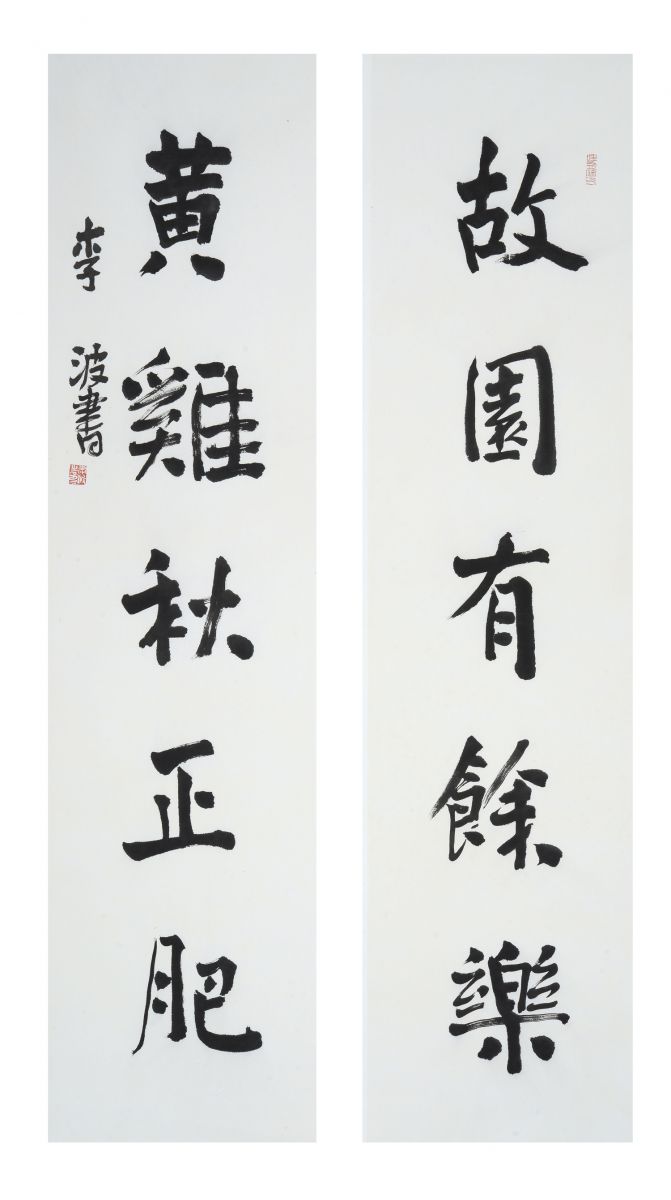 故園有餘樂
黃雞秋正肥
李波書